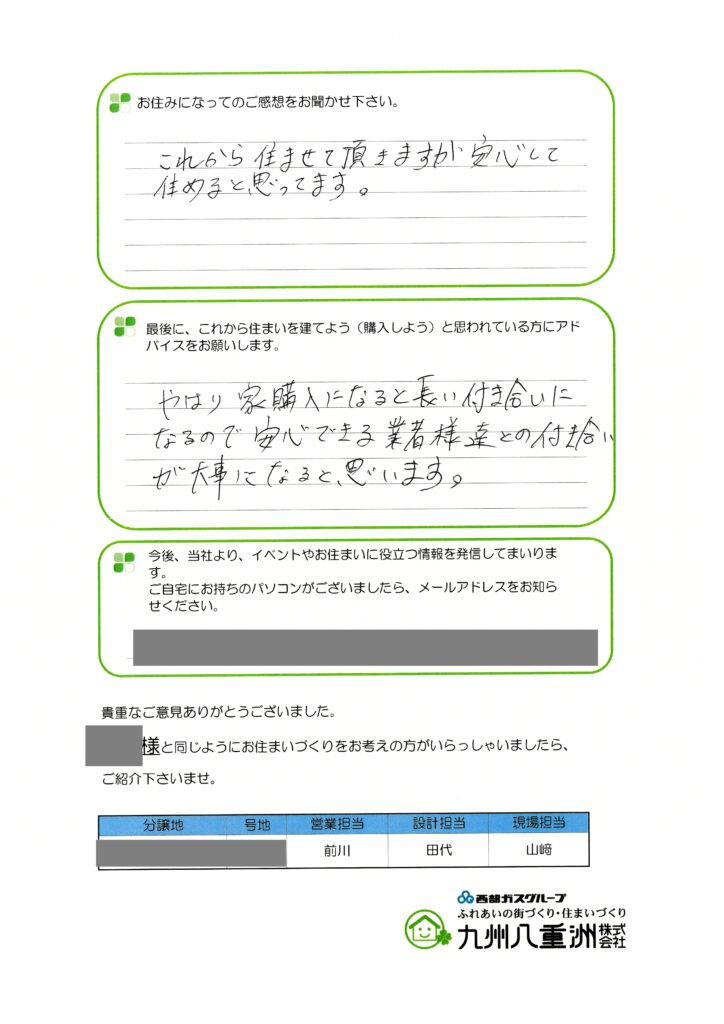 お住みになってのご感想をお聞かせ下さい。
これから住ませて頂きますが安心して
住めると思ってます。
最後に、これから住まいを建てよう（購入しよう）と思われている方にアド
バイスをお願いします。
やはり家購入になると長い付き合いに
なるので安心できる業者様達との付き合い
が大事になると思います。
今後、当社より、イベントやお住まいに役立つ情報を発信してまいりま
す。
ご自宅にお持ちのパソコンがございましたら、メールアドレスをお知ら
せください。
貴重なご意見ありがとうございました。
様と同じようにお住まいづくりをお考えの方がいらっしゃいましたら、
ご紹介下さいませ。
分譲地 号地 営業担当 設計担当 現場担当
前川 田代 山﨑
西部ガスグループ
ふれあいの街づくり・住まいづくり
九州八重洲株式会社